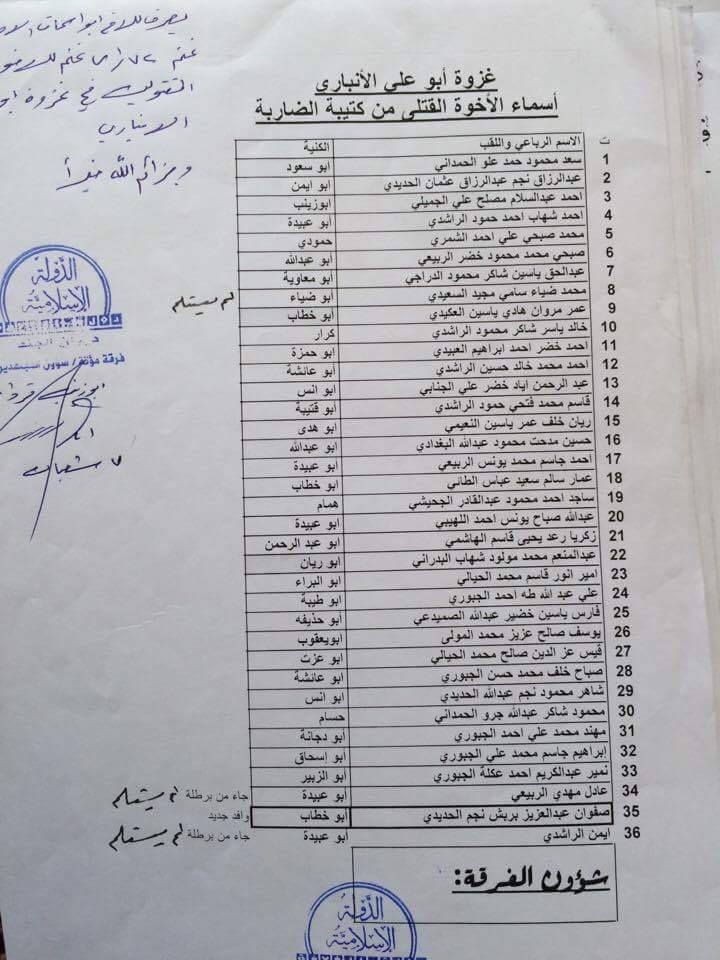 غنم
الانباري
غزوة أبو علي الأنباري
أسماء الأخوة القتلى من كتيبة الضاربة
ت الاسم الرباعي واللقب الكنية
1 سعد محمود حمد علو الحمداني ابو سعود
2 عبدالرزاق نجم عبدالرزاق عثمان الحديدي ابو ايمن
3 احمد عبدالسلام مصلح علي الجميلي ابوزينب
4 احمد شهاب احمد حمود الراشدي أبو عبيدة
5 محمد صبحي علي احمد الشمري حمودي
6 صبحي محمد محمود خضر الربيعي أبو عبدالله
7 عبدالحق ياسين شاكر محمود الدراجي أبو معاوية
8 محمد ضياء سامي مجيد السعيدي أبو ضياء لم يستلم
9 عمر مروان هادي ياسين العكيدي أبو خطاب
10 خالد ياسر شاكر محمود الراشدي كرار
11 احمد خضر احمد ابراهيم العبيدي ابو حمزة
12 احمد محمد خالد حسين الراشدي أبو عائشة
13 عبد الرحمن اياد خضر علي الجنابي أبو انس
14 قاسم محمد فتحي حمود الراشدي أبو قتيبة
15 ريان خلف عمر ياسين النعيمي أبو هدى
16 حسين مدحت محمود عبدالله البغدادي ابو عبدالله
17 احمد جاسم محمد يونس الربيعي أبو عبيدة
18 عمار سالم سعيد عباس الطائي أبو خطاب
19 ساجد احمد محمود عبدالقادر الجحيشي همام
20 عبدالله صباح يونس احمد اللهيبي ابو عبيدة
21 زكريا رعد يحيى قاسم الهاشمي ابو عبد الرحمن
22 عبدالمنعم محمد مولود شهاب البدراني ابو ريان
23 امير انور قاسم محمد الحيالي ابو البراء
24 علي عبد الله طه احمد الجبوري ابو طيبة
25 فارس ياسين خضير عبدالله الصميدعي أبو حذيفه
26 يوسف صالح عزيز محمد المولى ابويعقوب
27 قيس عز الدين صالح محمد الحيالي ابو عزت
28 صباح خلف محمد حسن الجبوري ابو عائشة
29 شاهر محمود نجم عبدالله الحديدي ابو انس
30 محمود شاكر عبدالله جرو الحمداني حسام
31 مهند محمد علي احمد الجبوري ابو دجانة
32 إبراهيم جاسم محمد علي الجبوري ابو إسحاق
33 نمير عبدالكريم احمد عكلة الجبوري أبو الزبير
34 عادل مهدي الربيعي أبو عبيدة جاء من برطلة لم يستلم
35 صفوان عبدالعزيز بربش نجم الحديدي أبو خطاب وافد جديد
36 ايمن الراشدي أبو عبيدة جاء من برطلة لم يستلم
شؤون الفرقة:
الدولة
الإسلامية
ديوان الجند
الدولة
الإسلامية